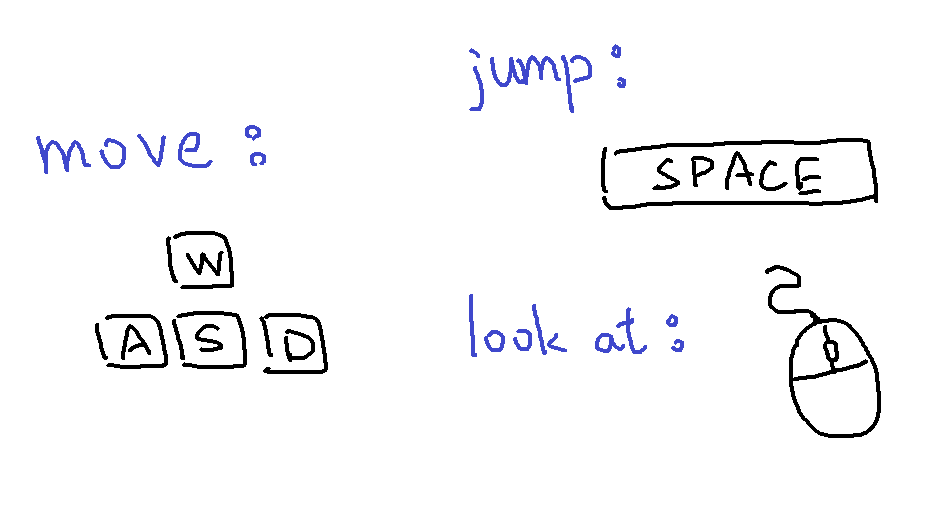 move:
W
A S D
jump:
SPACE
look at: